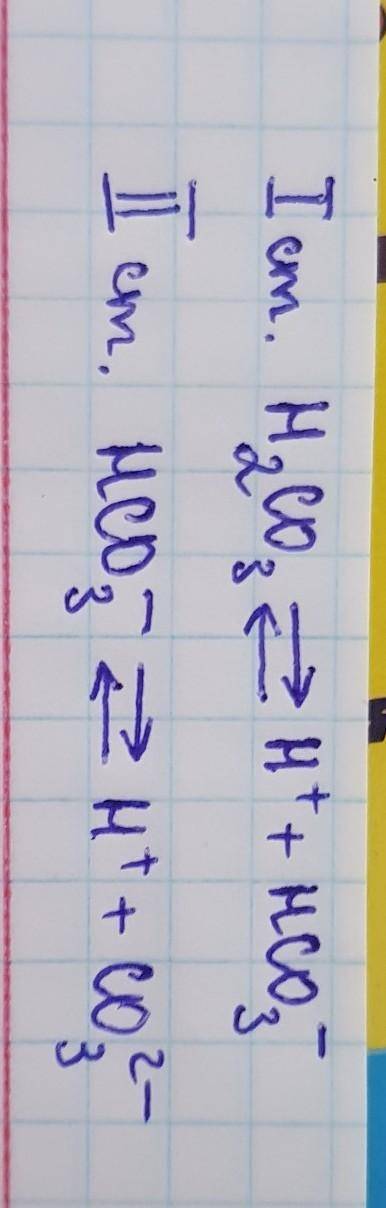 I ст. H₂CO₃ ⇄ H⁺ + HCO₃⁻
II ст. HCO₃⁻ ⇄ H⁺ + CO₃²⁻